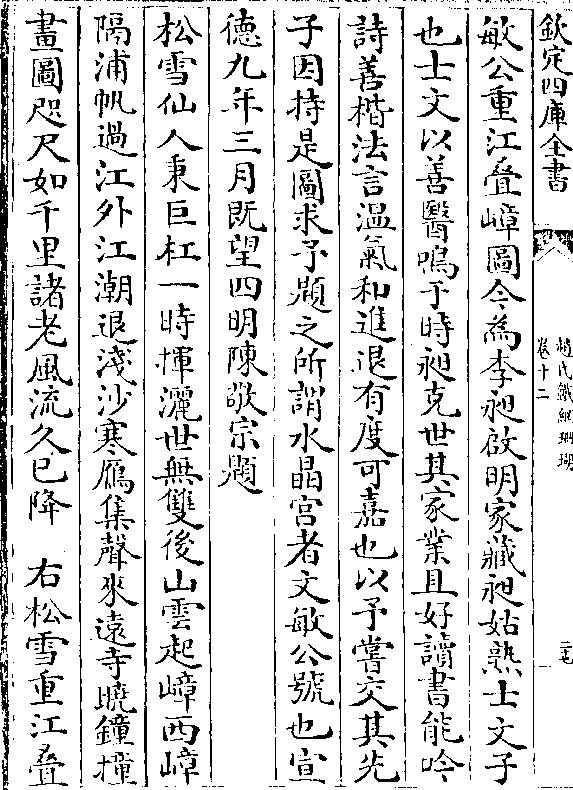 欽定四庫全書
趙氏鐵網珊瑚
卷十二
二七
敏公重江疊嶂圖今為李昶啟明家藏昶姑熟士文子
也士文以善醫鳴于時昶克世其家業且好讀書能吟
詩善楷法言溫氣和進退有度可嘉也以予嘗交其先
子因持是圖求予題之所謂水晶宮者文敏公號也宣
德九年三月既望四明陳敬宗題
松雪仙人秉巨杠一時揮灑世無雙後山雲起嶂西嶂
隔浦帆過江外江潮退淺沙寒鴈集聲來遠寺曉鐘撞
畫圖咫尺如千里諸老風流久已降　右松雪重江疊